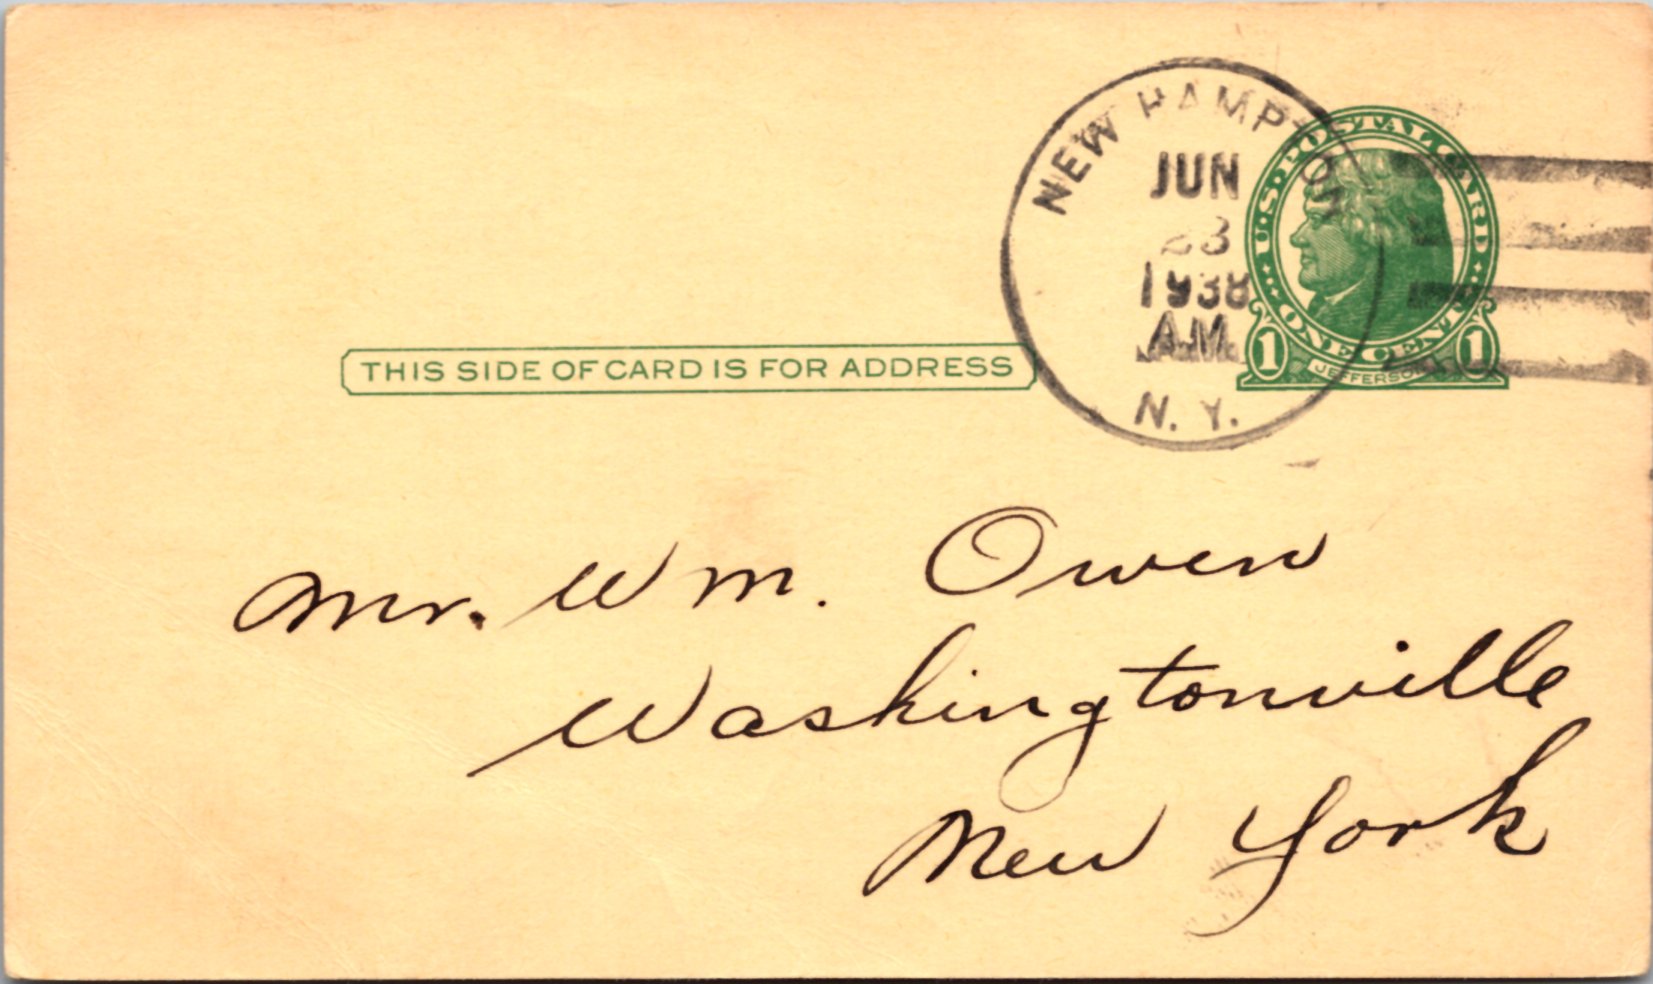 NEW HAMPTON
JUN
23
1938
AM
N. Y.
U·S·POSTAL CARD
ONE CENT
1 1
JEFFERSON
THIS SIDE OF CARD IS FOR ADDRESS
Mr. Wm. Owen
Washingtonville
New York